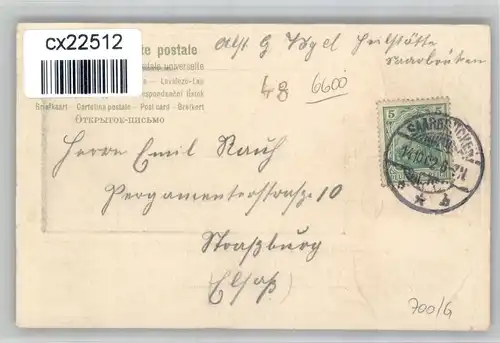 cx22512
te postale
postale universelle
e – Levelezö-Lap
respondenční lístek
Briefkaart – Cartolina postale – Post card – Brefkort
ОТКРЫТОЕ ПИСЬМО
Abs. G Vogel Heilstätte
Saarbrücken
48
6600
5
SAARBRÜCKEN
14.10.02.6-7N
b
Herrn Emil Rauh
Pergamenterstrasse 10
Straßburg
(Elsaß)
700/G